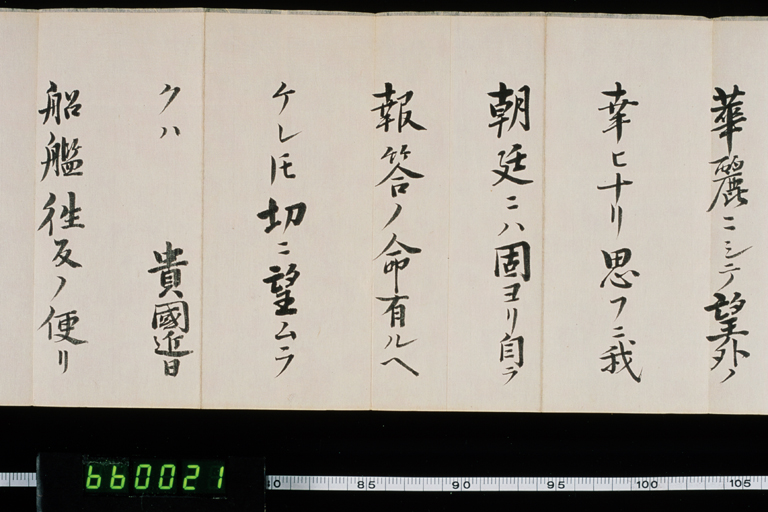 華麗ニシテ望外ノ
幸ヒナリ思フニ我
朝廷ニハ固ヨリ自ラ
報答ノ命有ルヘ
ケレ𪜈切ニ望ムラ
クハ　貴國近日
船艦徃反ノ便リ
660021
80 85 90 95 100 105